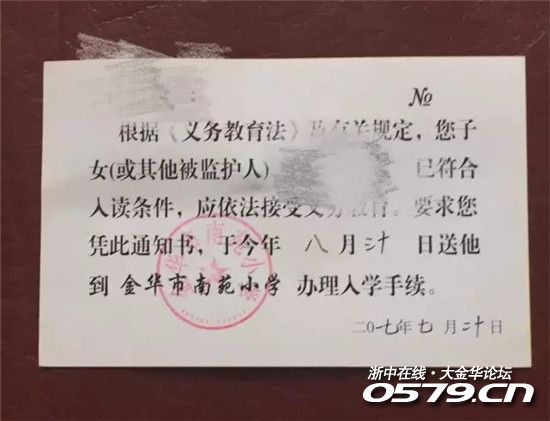 №
根据《义务教育法》及有关规定，您子
女(或其他被监护人) 已符合
入读条件，应依法接受义务教育。要求您
凭此通知书，于今年 八 月 三十 日送他
到 金华市南苑小学 办理入学手续。
金华市南苑小学
二〇一七年七月二十日
浙中在线·大金华论坛
0579.CN